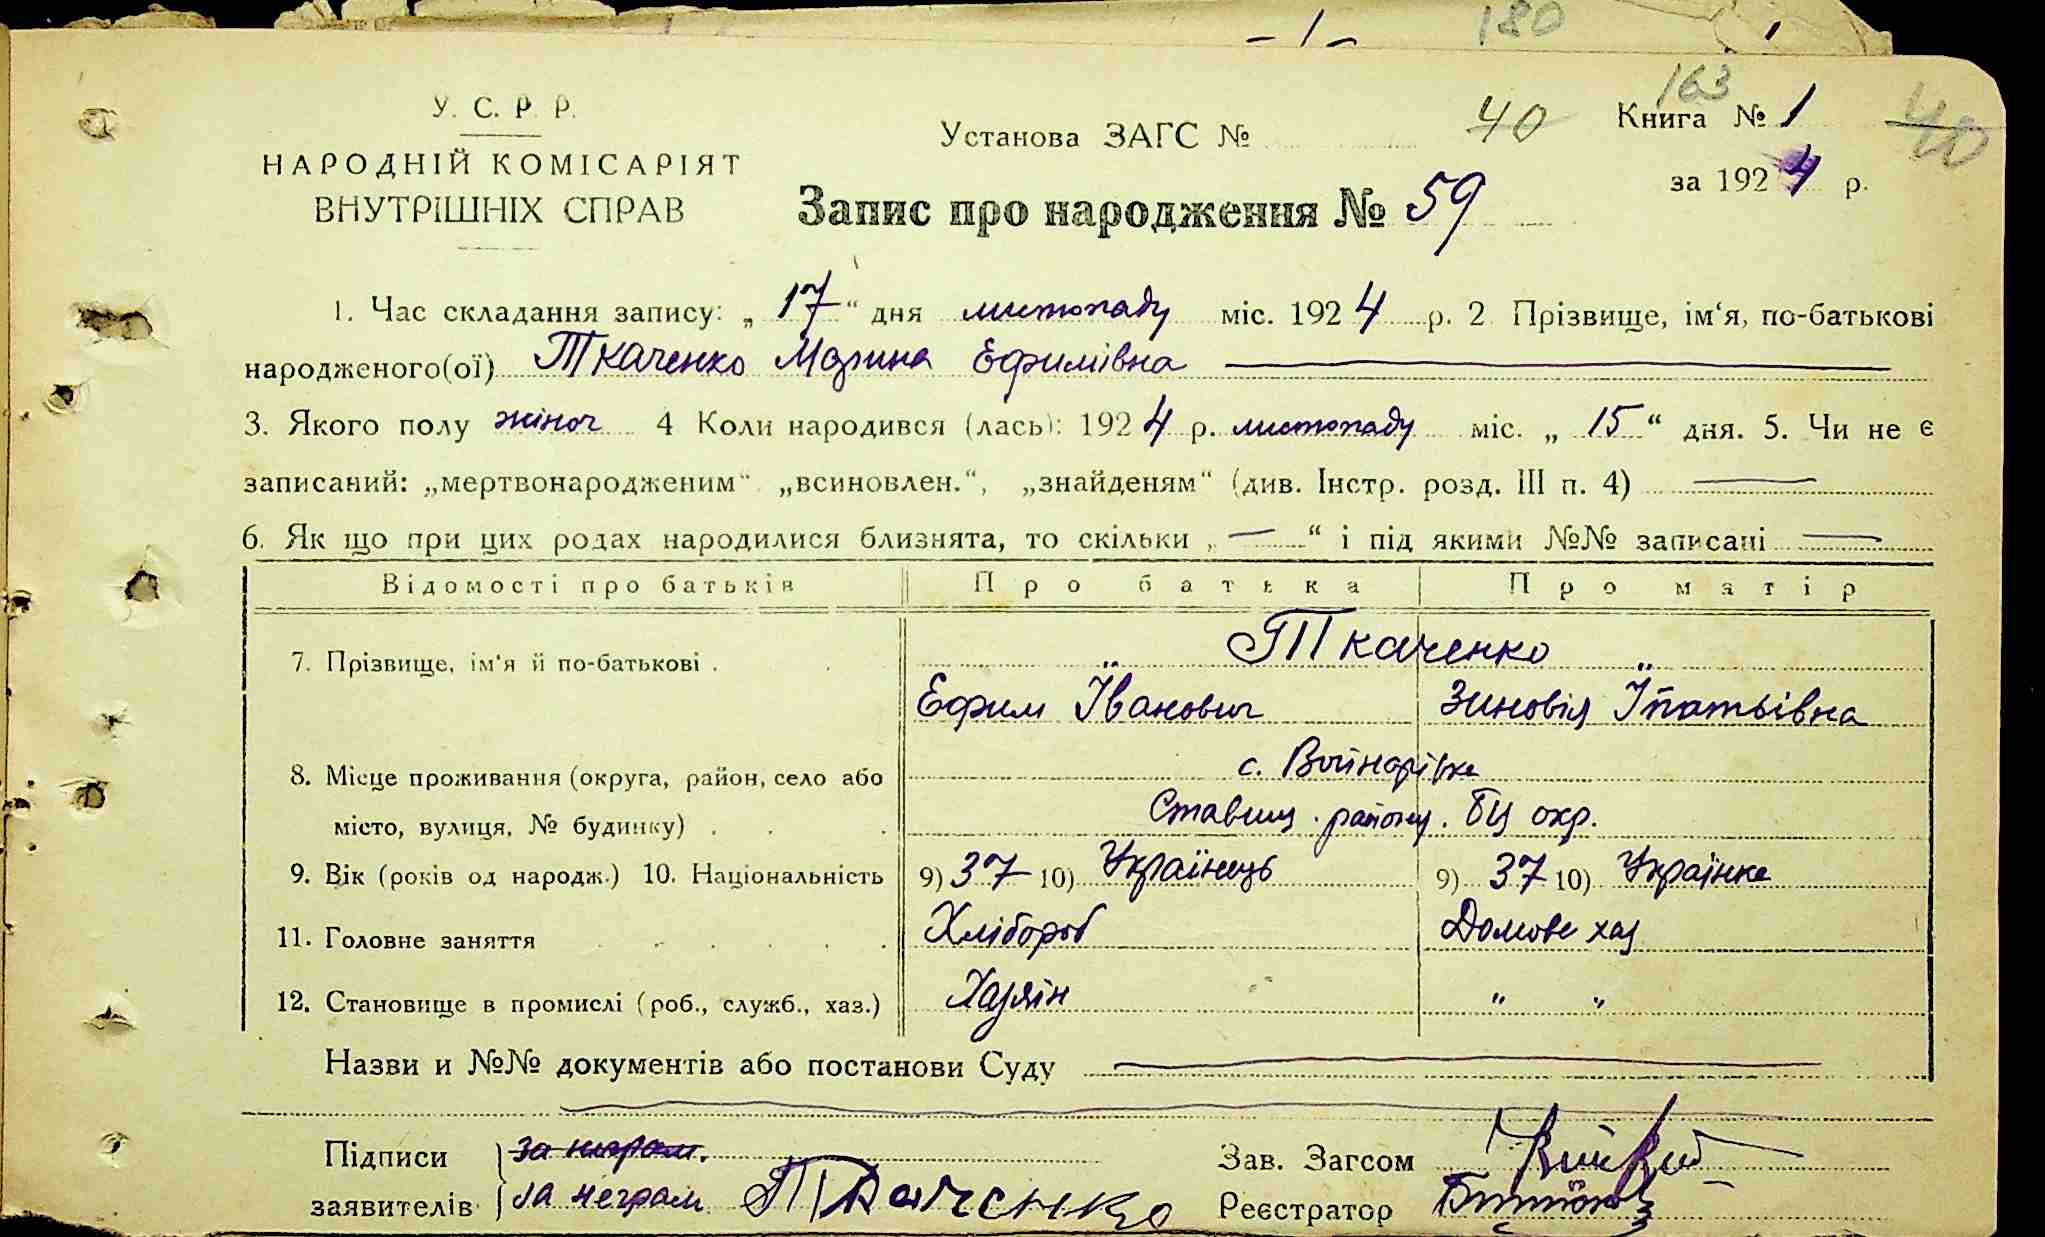 180
163
У. С. Р. Р.
НАРОДНІЙ КОМІСАРІЯТ
ВНУТРІШНІХ СПРАВ
Установа ЗАГС № 40
Книга № 1
40
за 1924 р.
Запис про народження № 59
1. Час складання запису: „ 17 “ дня листопаду міс. 1924 р. 2 Прізвище, ім‘я, по-батькові
народженого(ої) Ткаченко Марина Ефимівна
3. Якого полу жіноч 4 Коли народився (лась): 1924 р. листопаду міс. „ 15 “ дня. 5. Чи не є
записаний: „мертвонародженим“ „всиновлен.“, „знайденям“ (див. Інстр. розд. III п. 4) —
6. Як що при цих родах народилися близнята, то скільки „ — “ і під якими №№ записані —
Відомості про батьків Про батька Про матір
7. Прізвище, ім‘я й по-батькові . „ Ткаченко „
Ефим Іванович Зиновія Іпатьівна
8. Місце проживання (округа, район, село або с. Войнарівка
місто, вулиця, № будинку) . Ставищ. району. БЦ окр.
9. Вік (років од народж.) 10. Національність 9) 37 10) Українець 9) 37 10) Українка
11. Головне заняття Хлібороб Домове хаз
12. Становище в промислі (роб., служб., хаз.) Хазяін „ „
Назви и №№ документів або постанови Суду
Підписи за неграм. Зав. Загсом
заявителів за неграм Ткаченко Реєстратор